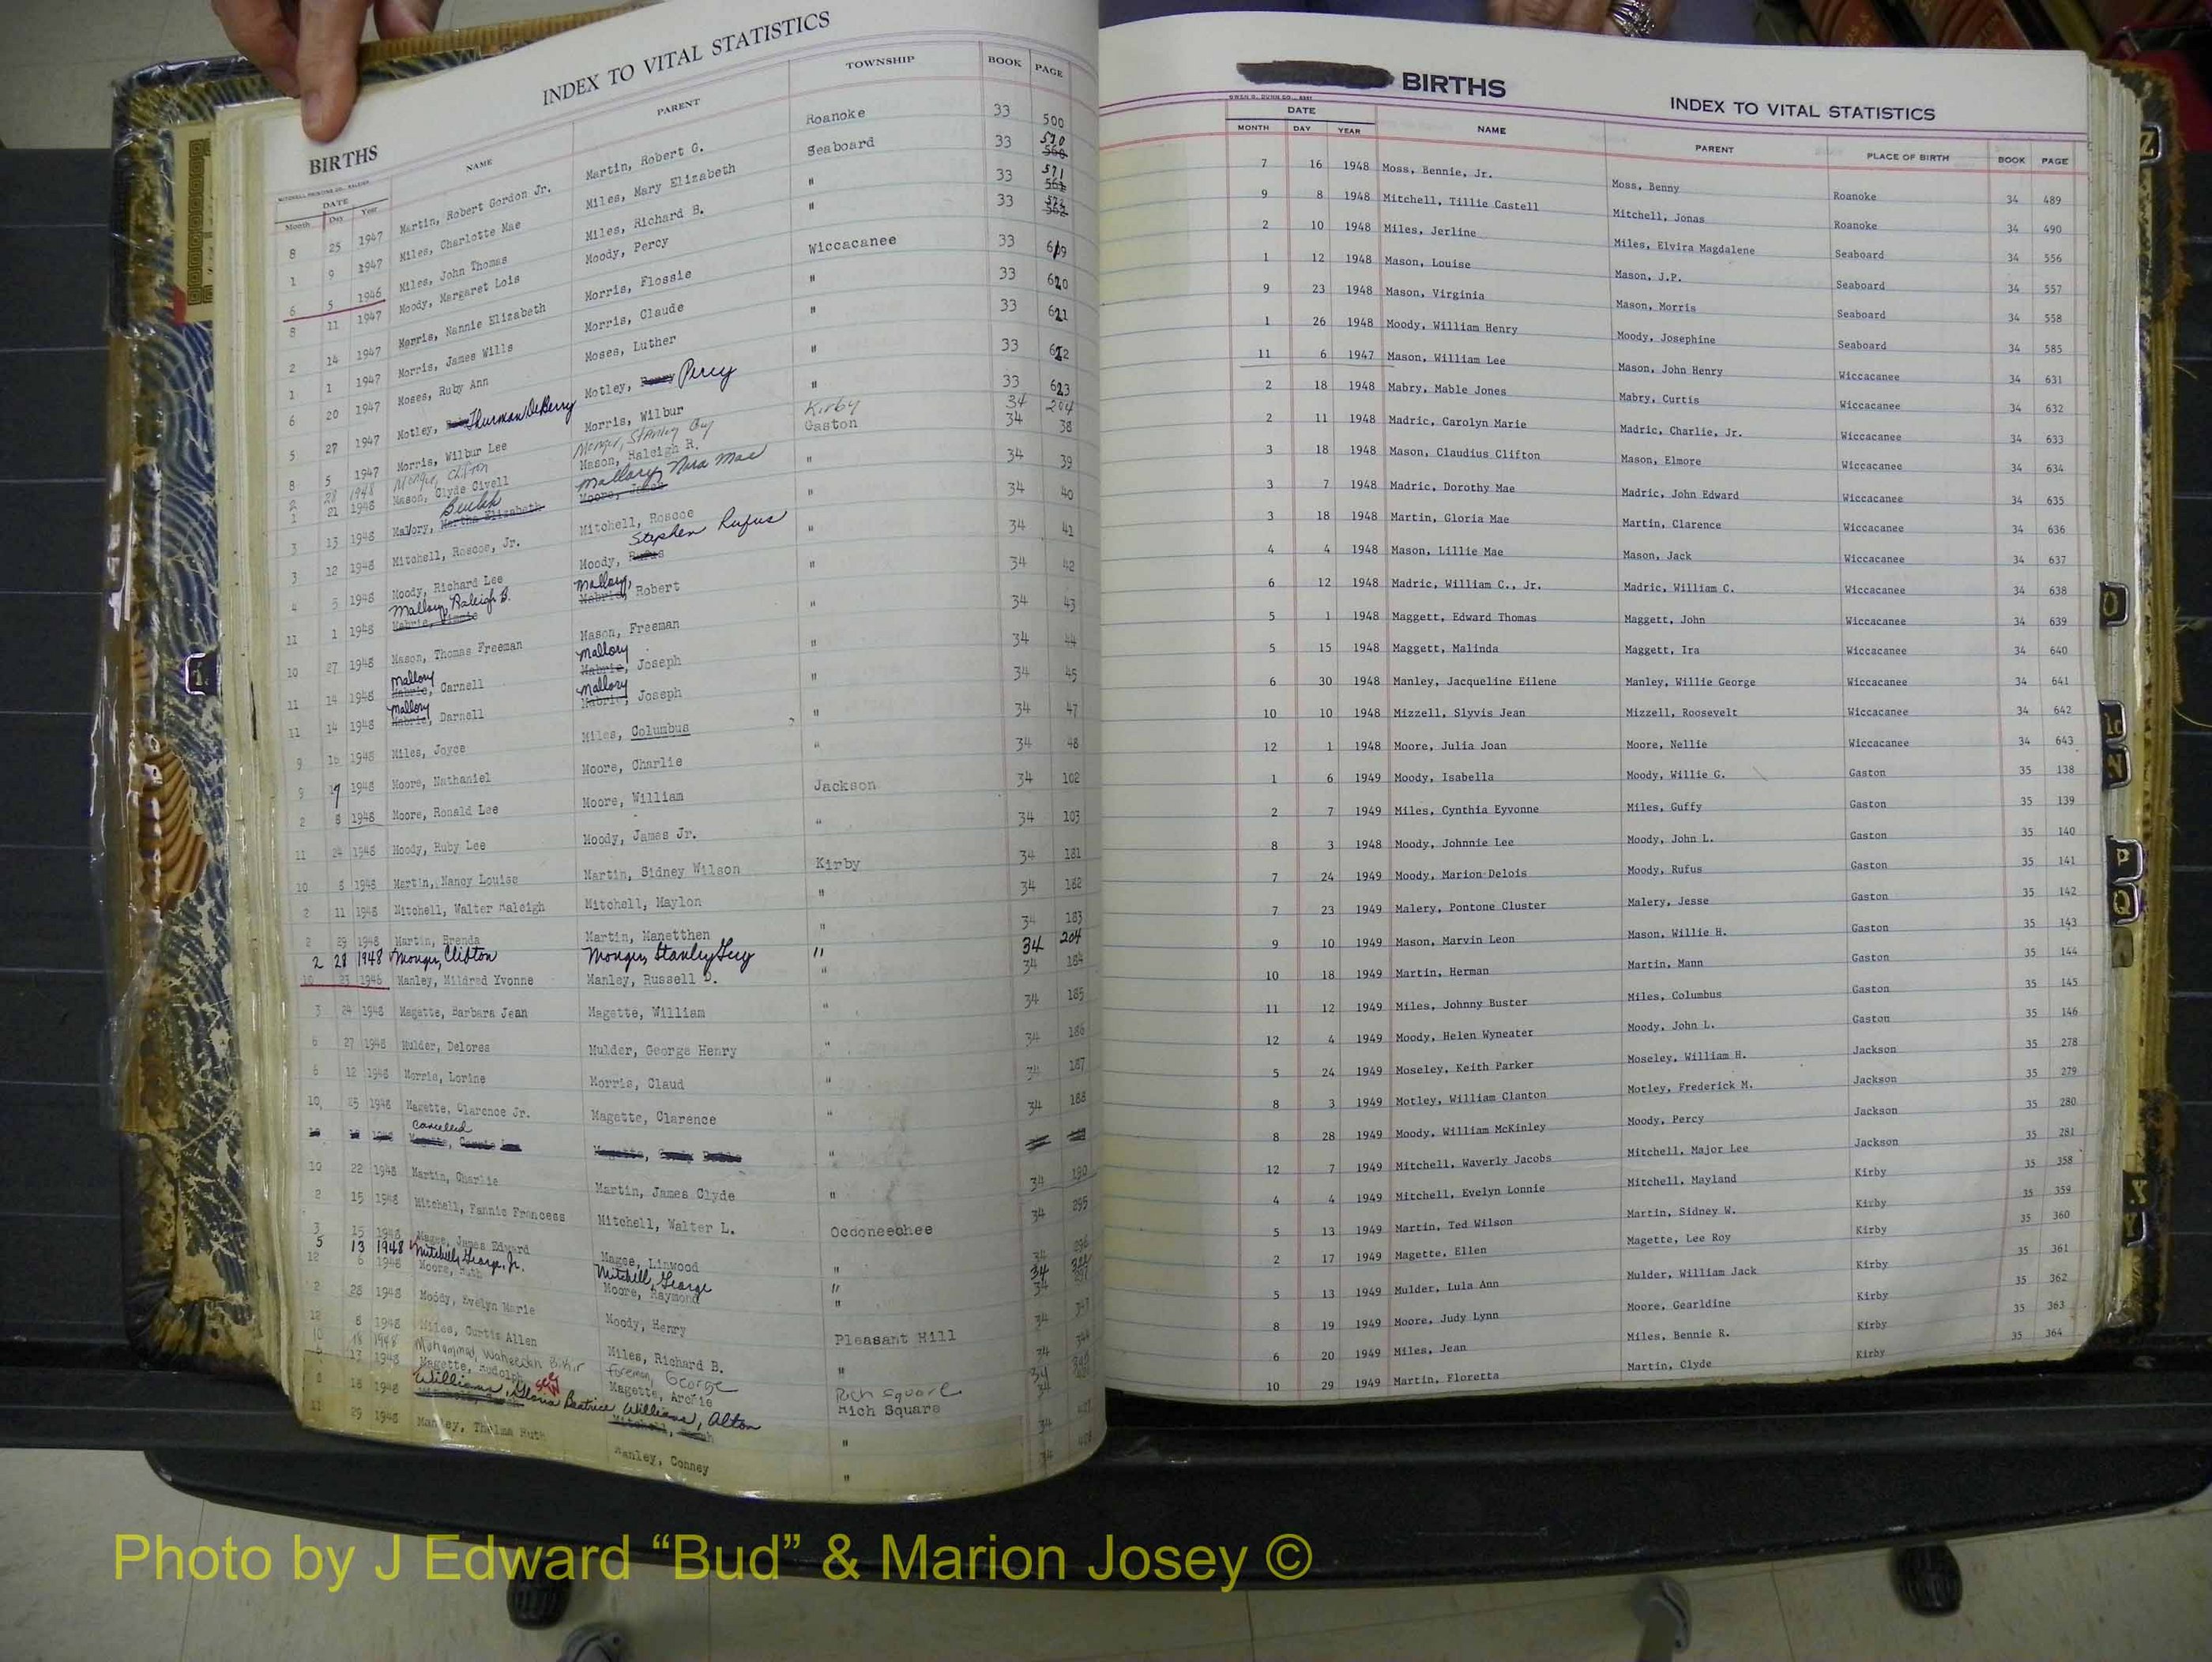 INDEX TO VITAL STATISTICS
BIRTHS
MITCHELL PRINTING CO., RALEIGH
DATE NAME PARENT TOWNSHIP BOOK PAGE
Month Day Year
8 25 1947 Martin, Robert Gordon Jr. Martin, Robert G. Roanoke 33 500
1 9 1947 Miles, Charlotte Mae Miles, Mary Elizabeth Seaboard 33 570 560
6 5 1946 Miles, John Thomas Miles, Richard B. " 33 571 561
8 11 1947 Moody, Margaret Lois Moody, Percy " 33 572 562
2 14 1947 Morris, Nannie Elizabeth Morris, Flossie Wiccacanee 33 619
1 1 1947 Morris, James Wills Morris, Claude " 33 620
6 20 1947 Moses, Ruby Ann Moses, Luther " 33 621
5 27 1947 Motley, Thurman DeBerry Motley, Percy " 33 622
8 5 1947 Morris, Wilbur Lee Morris, Wilbur " 33 623
2 28 1948 Monger, Clifton Monger, Stanley Guy Kirby 34 204
1 21 1948 Mason, Clyde Civell Mason, Raleigh R. Gaston 34 38
3 13 1948 Mallory, Beulah Martha Elizabeth Mallory, Nora Mae " 34 39
3 12 1948 Mitchell, Roscoe, Jr. Mitchell, Roscoe " 34 40
4 5 1948 Moody, Richard Lee Moody, Stephen Rufus Rufus " 34 41
11 1 1948 Mallory, Raleigh B. Mallory, Mabrie, Robert " 34 42
10 27 1948 Mason, Thomas Freeman Mason, Freeman " 34 43
11 14 1948 Mallory Mabrie, Carnell Mallory Mabrie, Joseph " 34 44
11 14 1948 Mallory Mabrie, Darnell Mallory Mabrie, Joseph " 34 45
9 1948 Miles, Joyce Miles, Columbus " 34 47
9 1948 Moore, Nathaniel Moore, Charlie " 34 48
2 8 1948 Moore, Ronald Lee Moore, William Jackson 34 102
11 24 1948 Moody, Ruby Lee Moody, James Jr. " 34 103
10 8 1948 Martin, Nancy Louise Martin, Sidney Wilson Kirby 34 181
2 11 1948 Mitchell, Walter Raleigh Mitchell, Maylon " 34 182
2 29 1948 Martin, Brenda Martin, Manetthen " 34 183
2 28 1948 Monger, Clifton Monger, Stanley Guy " 34 204
10 23 1946 Manley, Mildred Yvonne Manley, Russell D. " 34 184
3 24 1948 Magette, Barbara Jean Magette, William " 34 185
6 27 1948 Mulder, Delores Mulder, George Henry " 34 186
6 12 1948 Morris, Lorine Morris, Claud " 34 187
10 25 1948 Magette, Clarence Jr. Magette, Clarence " 34 188
Cancelled "
10 22 1948 Martin, Charlie Martin, James Clyde " 34 190
2 15 1948 Mitchell, Fannie Francess Mitchell, Walter L. Occoneechee 34 295
3 15 1948 Magee, James Edward Magee, Linwood " 34 296
5 13 1948 Mitchell, George, Jr. Mitchell, George " 34
12 6 1948 Moore, Ruth Moore, Raymond " 34 297
2 28 1948 Moody, Evelyn Marie Moody, Henry Pleasant Hill 34 343
12 8 1948 Miles, Curtis Allen Miles, Richard B. " 34 344
10 18 1948 Mohammad, Waheedah Foreman, George Rich Square 34
13 1948 Magette, Rudolph Magette, Archie Rich Square 34
8 18 1948 Williams, Gloria Beatrice see W Williams, Alton " 34
11 29 1948 Manley, Thelma Ruth Manley, Conney " 34
BIRTHS
INDEX TO VITAL STATISTICS
OWEN G. DUNN CO.
DATE NAME PARENT PLACE OF BIRTH BOOK PAGE
MONTH DAY YEAR
7 16 1948 Moss, Bennie, Jr. Moss, Benny Roanoke 34 489
9 8 1948 Mitchell, Tillie Castell Mitchell, Jonas Roanoke 34 490
2 10 1948 Miles, Jerline Miles, Elvira Magdalene Seaboard 34 556
1 12 1948 Mason, Louise Mason, J.P. Seaboard 34 557
9 23 1948 Mason, Virginia Mason, Morris Seaboard 34 558
1 26 1948 Moody, William Henry Moody, Josephine Seaboard 34 585
11 6 1947 Mason, William Lee Mason, John Henry Wiccacanee 34 631
2 18 1948 Mabry, Mable Jones Mabry, Curtis Wiccacanee 34 632
2 11 1948 Madric, Carolyn Marie Madric, Charlie, Jr. Wiccacanee 34 633
3 18 1948 Mason, Claudius Clifton Mason, Elmore Wiccacanee 34 634
3 7 1948 Madric, Dorothy Mae Madric, John Edward Wiccacanee 34 635
3 18 1948 Martin, Gloria Mae Martin, Clarence Wiccacanee 34 636
4 4 1948 Mason, Lillie Mae Mason, Jack Wiccacanee 34 637
6 12 1948 Madric, William C., Jr. Madric, William C. Wiccacanee 34 638
5 1 1948 Maggett, Edward Thomas Maggett, John Wiccacanee 34 639
5 15 1948 Maggett, Malinda Maggett, Ira Wiccacanee 34 640
6 30 1948 Manley, Jacqueline Eilene Manley, Willie George Wiccacanee 34 641
10 10 1948 Mizzell, Slyvis Jean Mizzell, Roosevelt Wiccacanee 34 642
12 1 1948 Moore, Julia Joan Moore, Nellie Wiccacanee 34 643
1 6 1949 Moody, Isabella Moody, Willie G. Gaston 35 138
2 7 1949 Miles, Cynthia Eyvonne Miles, Guffy Gaston 35 139
8 3 1948 Moody, Johnnie Lee Moody, John L. Gaston 35 140
7 24 1949 Moody, Marion Delois Moody, Rufus Gaston 35 141
7 23 1949 Malery, Pontone Cluster Malery, Jesse Gaston 35 142
9 10 1949 Mason, Marvin Leon Mason, Willie H. Gaston 35 143
10 18 1949 Martin, Herman Martin, Mann Gaston 35 144
11 12 1949 Miles, Johnny Buster Miles, Columbus Gaston 35 145
12 4 1949 Moody, Helen Wyneater Moody, John L. Gaston 35 146
5 24 1949 Moseley, Keith Parker Moseley, William H. Jackson 35 278
8 3 1949 Motley, William Clanton Motley, Frederick M. Jackson 35 279
8 28 1949 Moody, William McKinley Moody, Percy Jackson 35 280
12 7 1949 Mitchell, Waverly Jacobs Mitchell, Major Lee Jackson 35 281
4 4 1949 Mitchell, Evelyn Lonnie Mitchell, Mayland Kirby 35 358
5 13 1949 Martin, Ted Wilson Martin, Sidney W. Kirby 35 359
2 17 1949 Magette, Ellen Magette, Lee Roy Kirby 35 360
5 13 1949 Mulder, Lula Ann Mulder, William Jack Kirby 35 361
8 19 1949 Moore, Judy Lynn Moore, Gearldine Kirby 35 362
6 20 1949 Miles, Jean Miles, Bennie R. Kirby 35 363
10 29 1949 Martin, Floretta Martin, Clyde Kirby 35 364
Z
O
M
N
P
Q
X
Y
Photo by J Edward “Bud” & Marion Josey ©